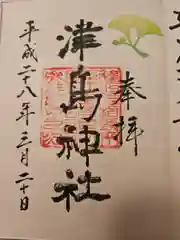 奉拝
津島神社
平成二十八年三月二十日